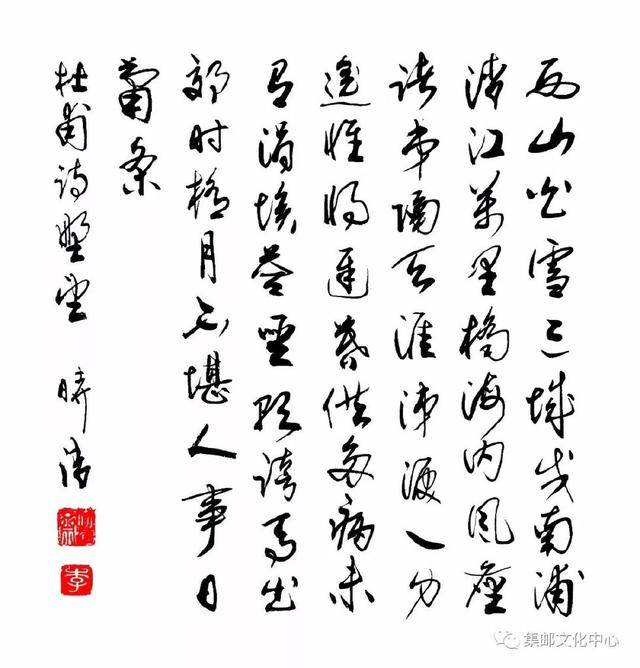 西山白雪三城戍南浦
清江萬里橋海内风塵
诸弟隔天涯涕淚一身
遥惟将遲暮供多病未
有涓埃答聖朝跨马出
郊时極目不堪人事日
萧条
杜甫诗野望 晴
李
集邮文化中心